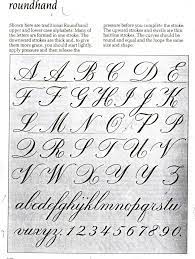 roundhand
Shown here are traditional Roundhand
upper and lower case alphabets. Many of
the letters are formed in one stroke. The
downward strokes are thick and, to give
them more grace, you should start lightly,
apply pressure and then release the
pressure before you complete the stroke.
The upward strokes and swirls are thin
hairline strokes. The curves should be
round and equal and the loops the same
size and shape.
A B C D E
F G H I J K
L M N O P
Q R S T U
V W X Y Z
abcdefghijklmnopqrstu
vwxyz. 1234567890.